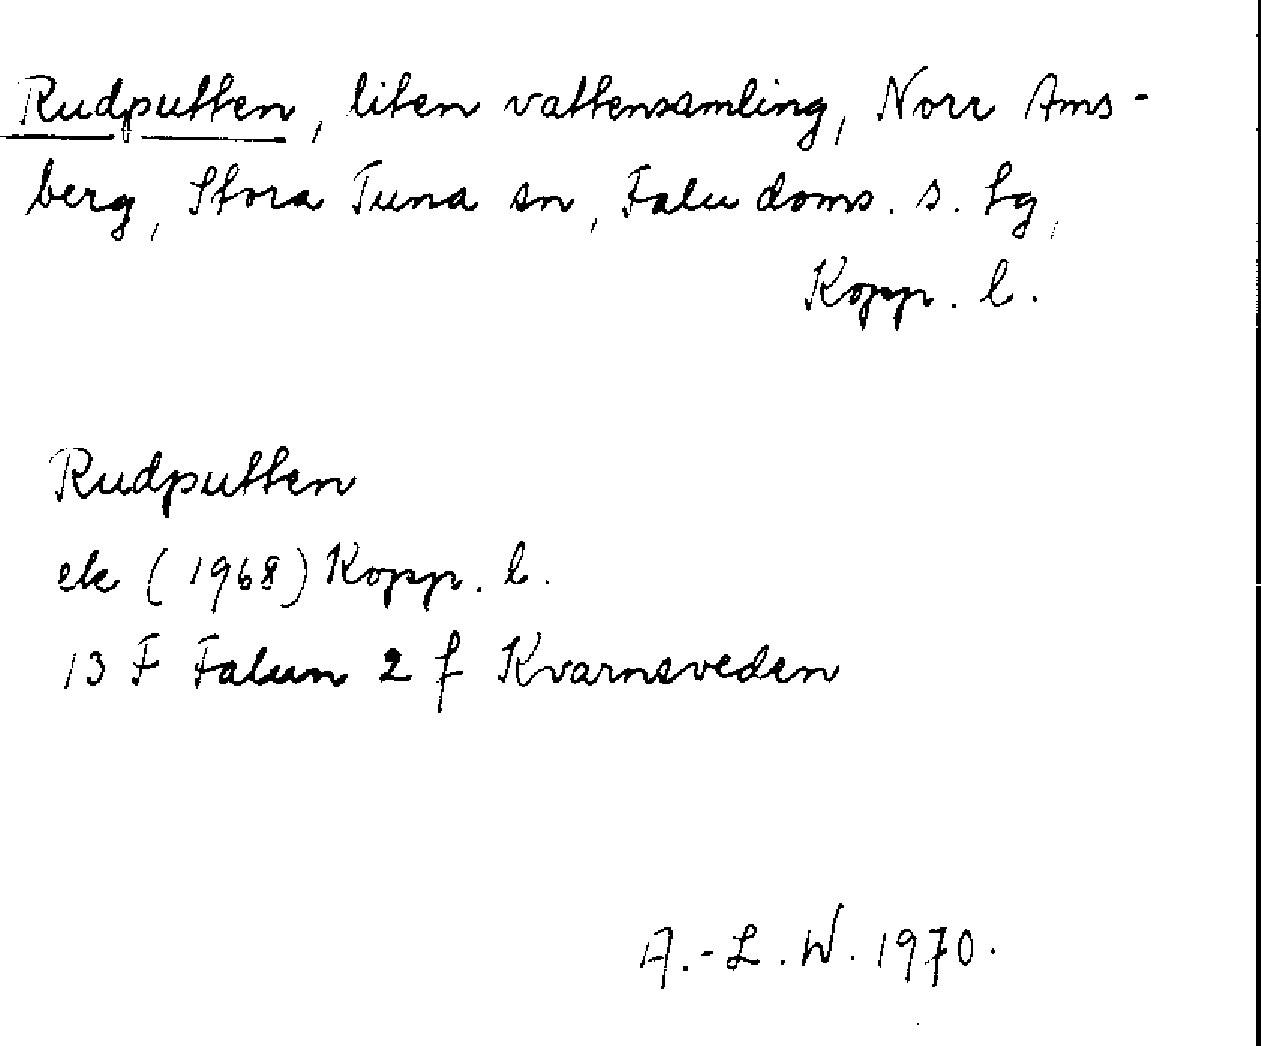 Rudputten, liten vattensamling, Norr Ams-
berg, Stora Tuna sn, Falu doms. s. tg,
Kopp. l.
Rudputten
ek (1968) Kopp. l.
13 F Falun 2 f Kvarnsveden
A.-L. W. 1970.